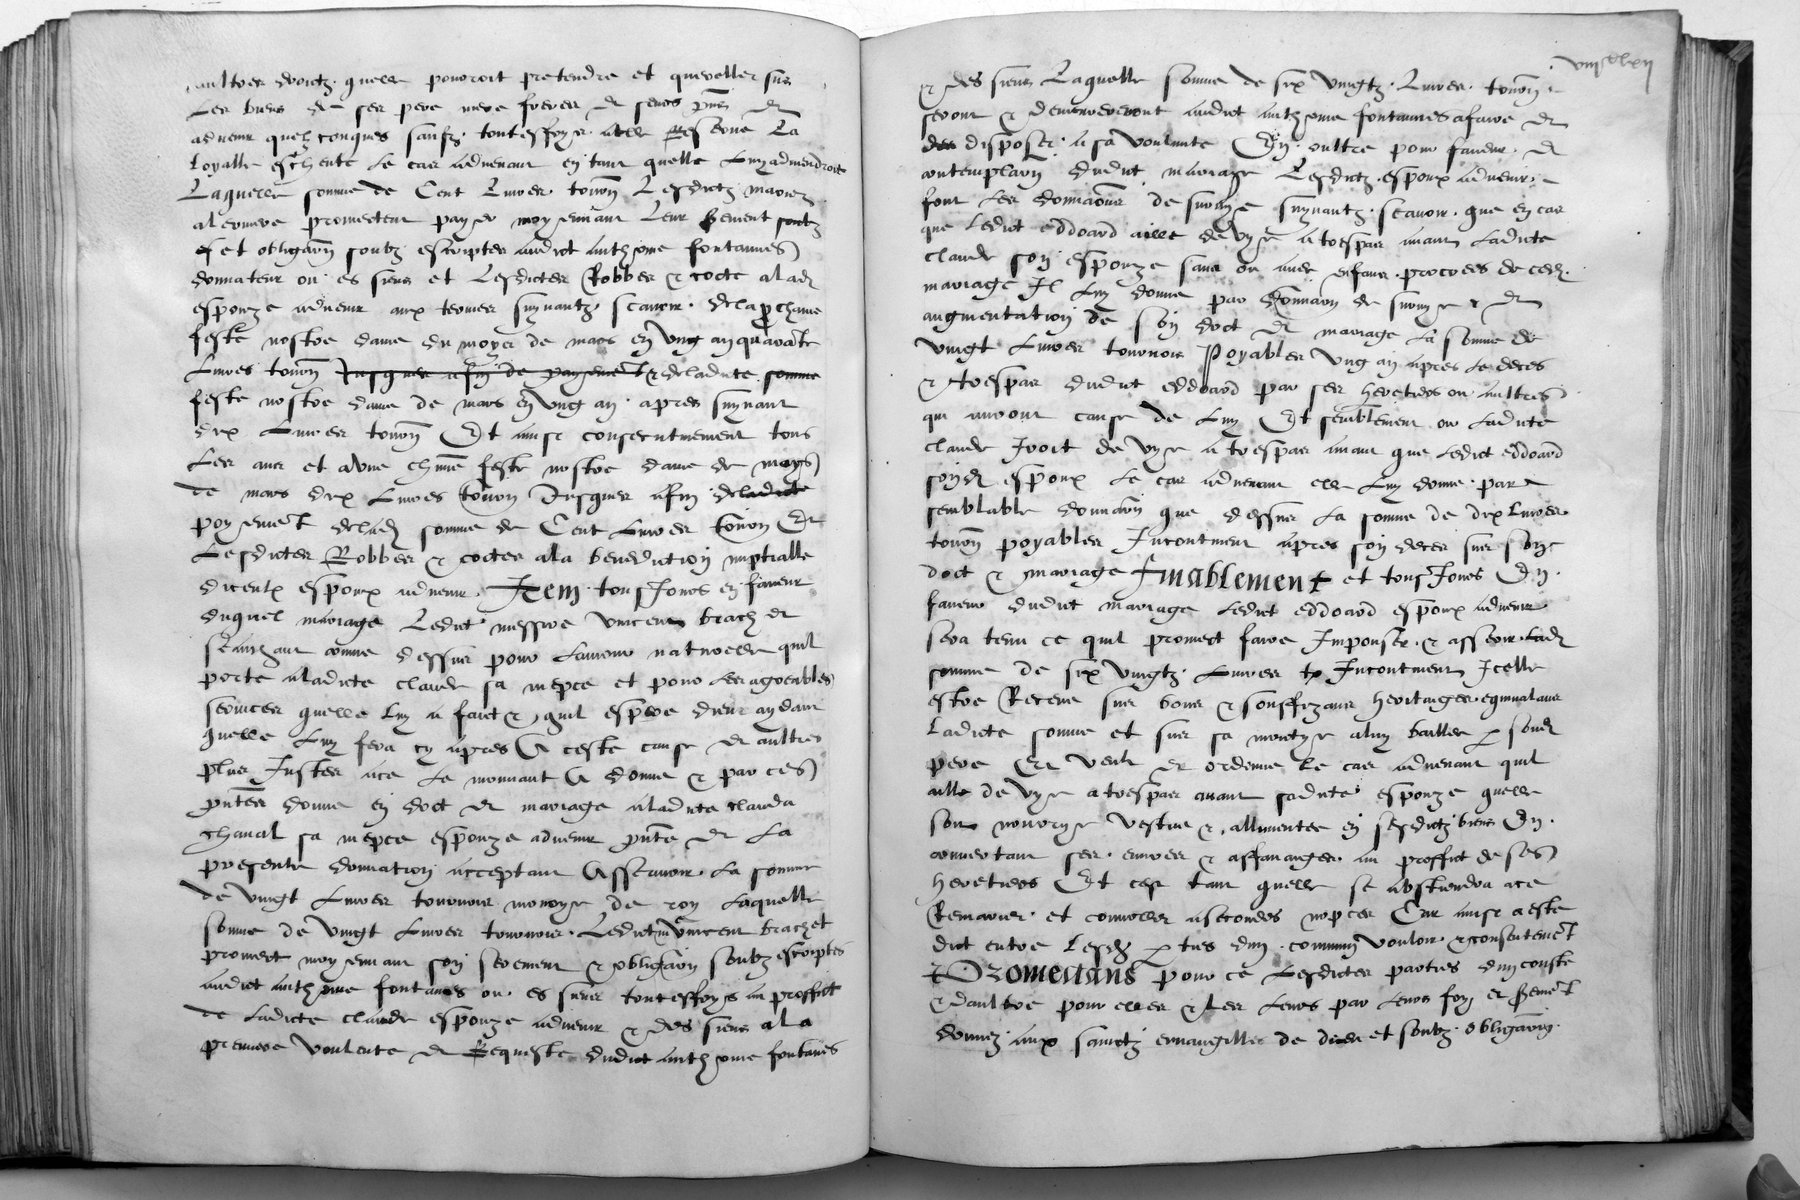 aultres droictz quelle pourroit pretendre et quereller sur
Les biens de ses pere mere freres et seurs pñs et
advenir quelzconques saufz toutesfoys a elle Reservé La
Loyalle eschente le cas advenant en tant quelle Luy adviendroit
Laquelle somme de Cent Livres tourñ Lesdictz mariez
promectent payer moyennant Leur serment soubz
et obligaõn soubz escriptes audict anthoyne fontannes
donnateur ou es siens et Lesdictes Robbes & cocte a lad
espouze advenir aux termes suyvantz scavoir de la pchaine
feste nostre dame du moys de mars en ung an quarãte
Livres tourñ Jusques a fin de payement & de ladicte somme
feste nostre dame de mars en ung an apres suyvant
dix Livres tourñ Et ainsi consecutivement tous
Les ans et a une chũne feste nostre dame de moys
de mars dix Livres tourñ Jusques a fin de ladicte
poyemẽt de lad somme de Cent Livres tourñ Et
Lesdictes Robbes & coctes a la benediction nuptialle
espoux advenir Item tousJours en faveur
duquel mariage Ledict messire vincens brach et
comme dessus pour Lamour naturelle quil
porte a ladicte claude sa niepce et pour les agreables
services quelle Luy a faict & quil espere dieu aydant
quelle Luy fera cy apres Et a ceste cause et aultres
plus Justes ace Le mouvant A donne & par ces
pñtes donne en doct et mariage a ladicte clauda
chaval sa niepce espouze advenir pñte et La
presente donnation acceptant Asscavoir La somme
de vingt Livres tournois monoye de roy Laquelle
somme de vingt Livres tournois Ledict mr vincent brachet
promect moyennant son serement & obligaõn soubz escriptes
audict anthoyne fontanes ou es siens toutesfoys au proffict
de Ladicte claude espouze advenir & des siens a la
premiere voulente et Requeste dudict anthoyne fontanes
viijclxij
& des siens Laquelle somme de six vingtz Livres tourñ
seront & demeureront audict anthoyne fontannes a faire et
disposer a sa voulunte En oultre pour faveur et
contemplaõn dudict mariage Lesdictz espoux advenir
font Les donnaõns de survye suyvantz scavoir que en cas
que Ledict eddoard aille de vye a trespas avant Ladicte
claude son espouze sans ou avec enfans procrees de ced
mariage Il Luy donne par donnaõn de survye & et
augmentation de son doct et mariage La somme de
vingt Livres tournois Poyables ung an apres Le deces
& trespas dudict eddoard par ses heretiers ou aultres
qui auront cause de Luy Et semblement ou Ladicte
claude Iroit de vye a trespas avant que Ledict eddoard
sond espoux Le cas advenant elle Luy donne par
semblable donnaõn que dessus La somme de dix Livres
tourñ poyables Incontinent apres son deces sur son
doct & mariage Finablement et tousJours En
faveur dudict mariage Ledict eddoard espoux advenir
sera tenu ce quil promect faire Imponser & asseoir Lad
somme de six vingtz Livres tz Incontinent Icelle
estre Receue sur bons & souffizans heritaiges equivalans
Ladicte somme et sur sa moictye a luy baillee p sond
pere Et veult et ordonne Le cas advenant quil
aille de vye a trespas avant sadicte espouze quelle
soit nourrye vestue & allimentee en sesdictz biens En
convertant ses euvres & affananges au proffict de ses
heretiers Et cest tant quelle se abstiendra ace
Remarier et convoller a secondes nopces Car ainsi a este
dict entre Lesd pties dun commun vouloir & consentemẽt
Promectans pour ce Lesdictes parties dung couste
& daultre pour elles & Les Leurs par Leurs foy et sermẽt
donnez aux sainctz euvangilles de dieu et soubz obligaõn